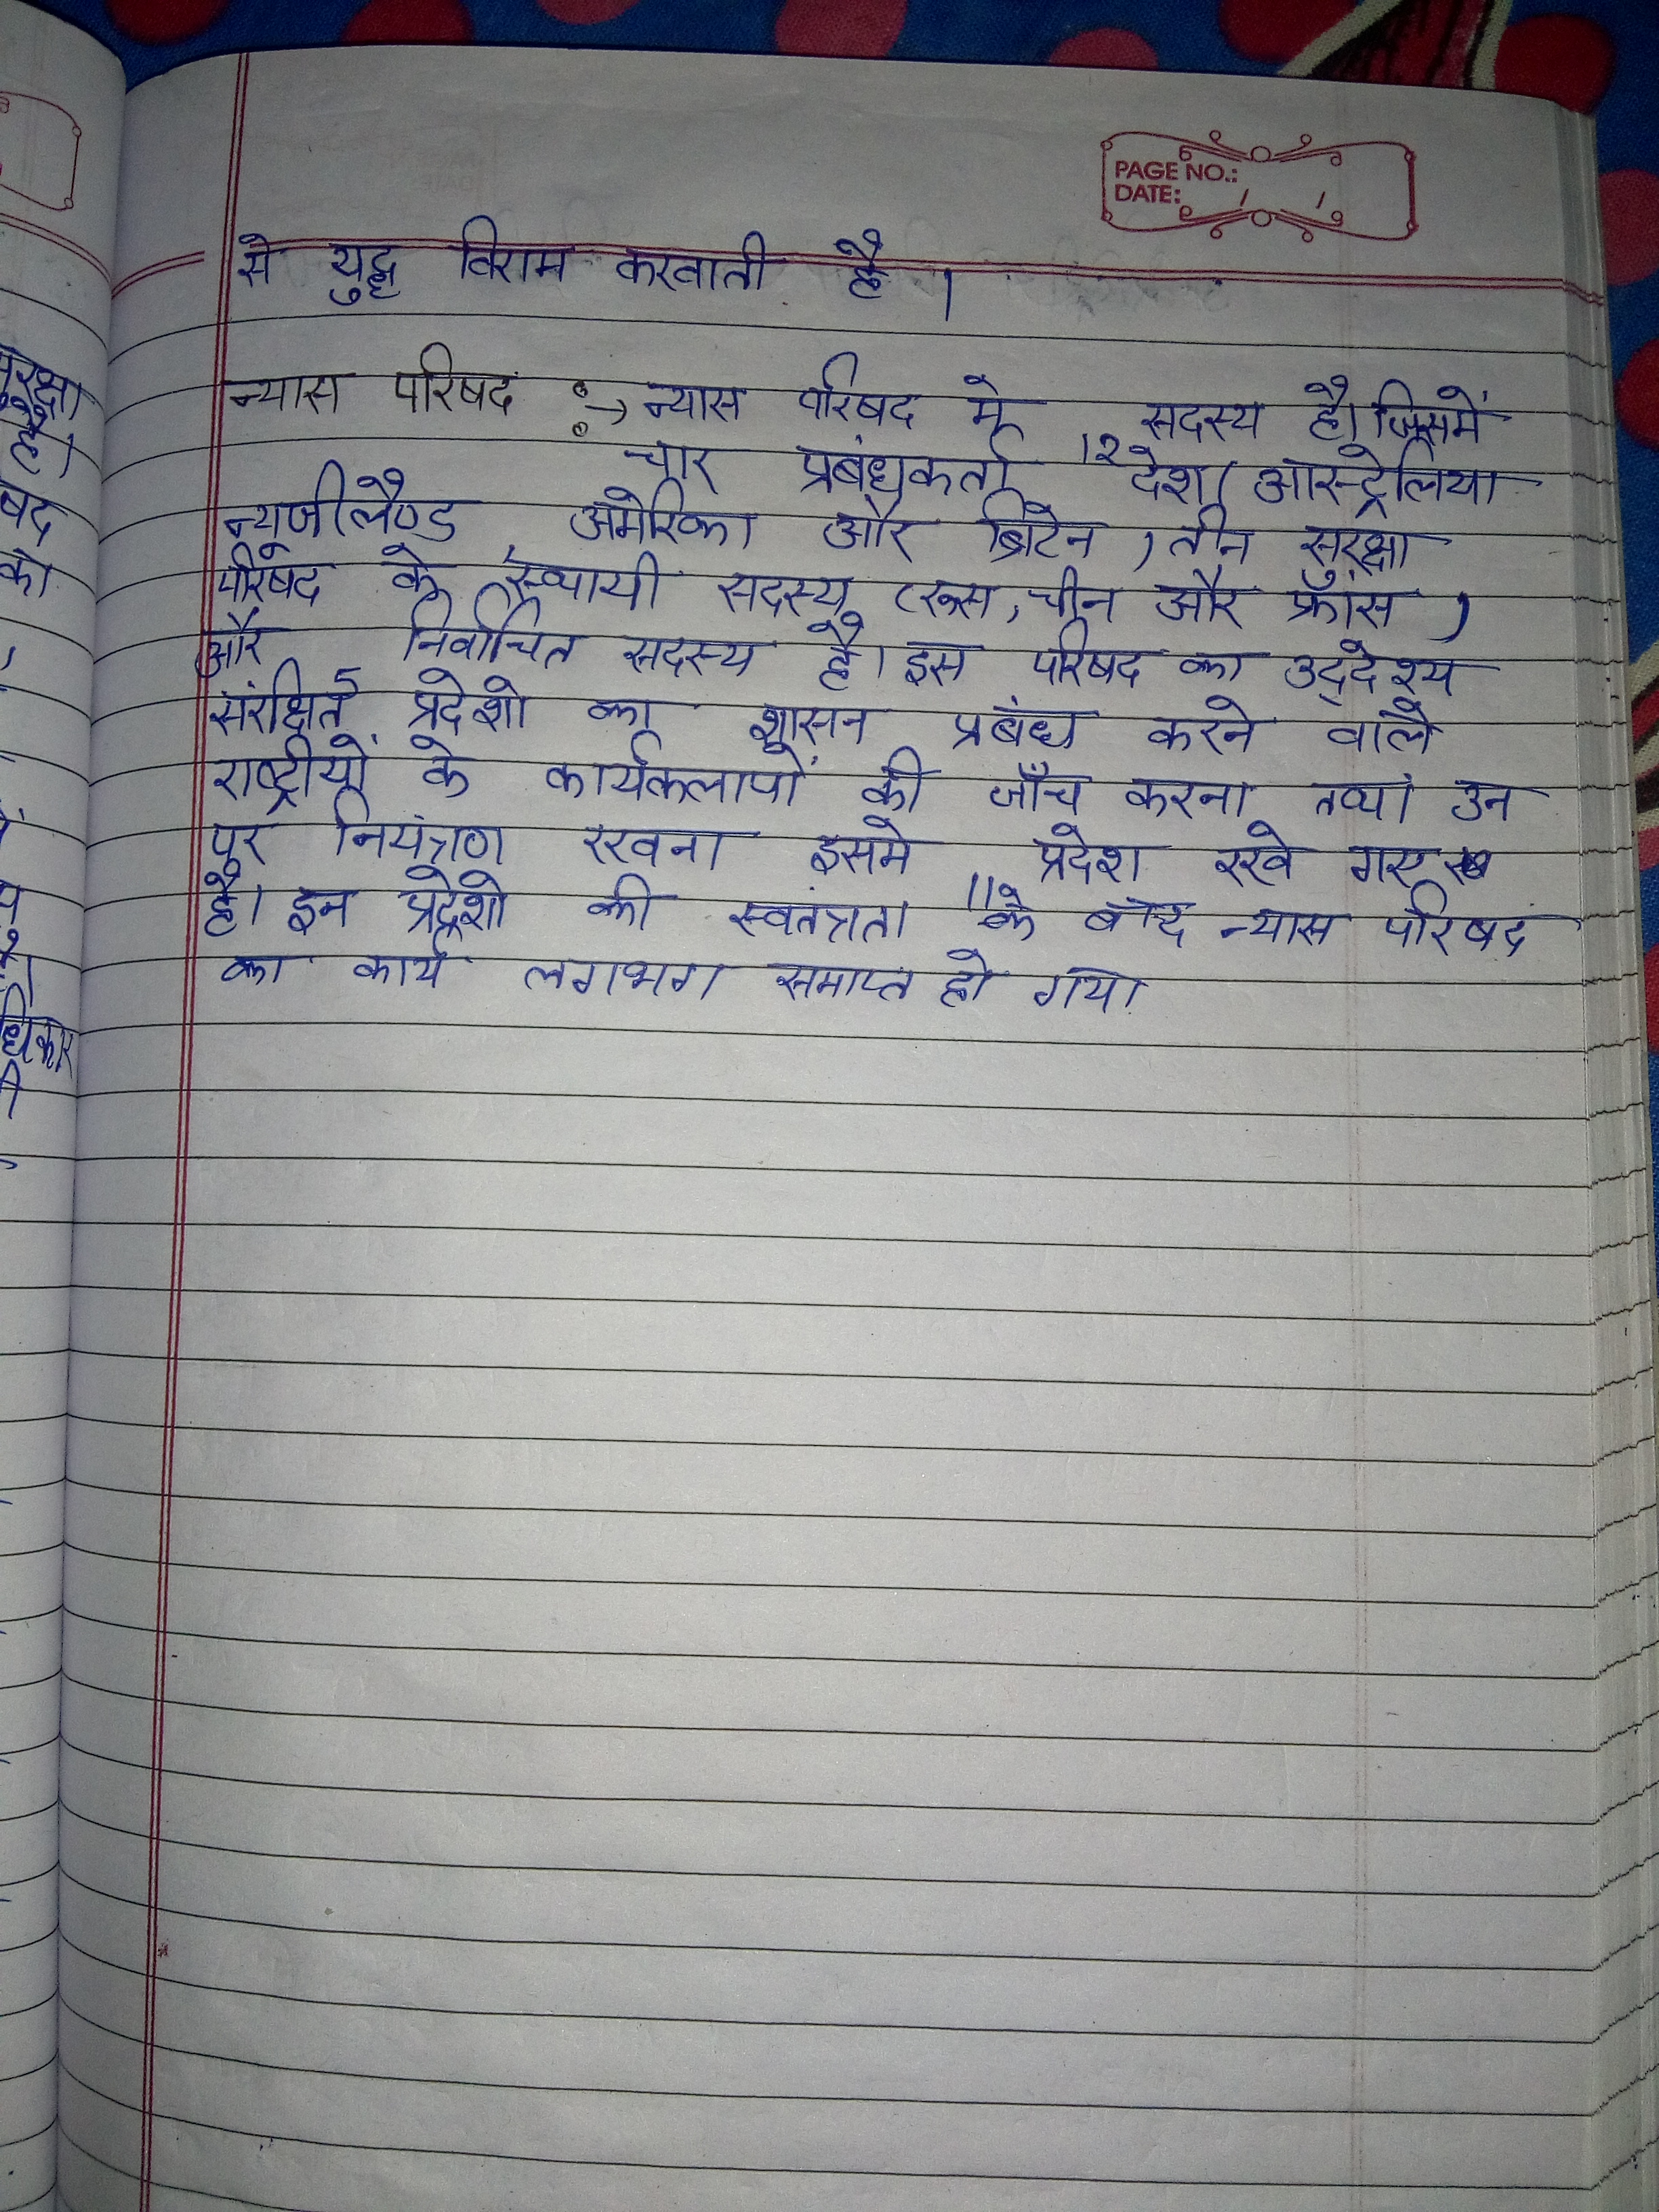 PAGE NO.:
DATE: / /
से युद्ध विराम करवाती है ।
न्यास परिषद :→ न्यास परिषद मे 12 सदस्य है। जिसमें
चार प्रबंधकर्ता देश (आस्ट्रेलिया
न्यूजीलैण्ड, अमेरिका और ब्रिटेन) तीन सुरक्षा
परिषद के स्थायी सदस्य (रूस, चीन और फ्रांस)
और 5 निर्वाचित सदस्य है। इस परिषद का उद्देश्य
संरक्षित प्रदेशो का शासन प्रबंध करने वाले
राष्ट्रीयों के कार्यकलापों की जाँच करना तथा उन
पर नियंत्रण रखना इसमे 11 प्रदेश रखे गए
है। इन प्रदेशो की स्वतंत्रता के बाद न्यास परिषद
का कार्य लगभग समाप्त हो गया
सुरक्षा
है।
षद
को
धिकार